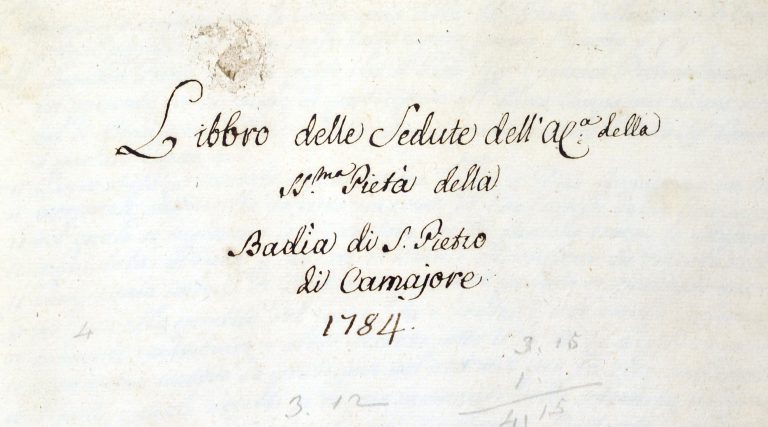 Libbro delle Sedute dell'Al:ª della
SS.ma Pietà della
Badia di S. Pietro
di Camajore
1784.
4
3. 15
1
3. 12
4 15